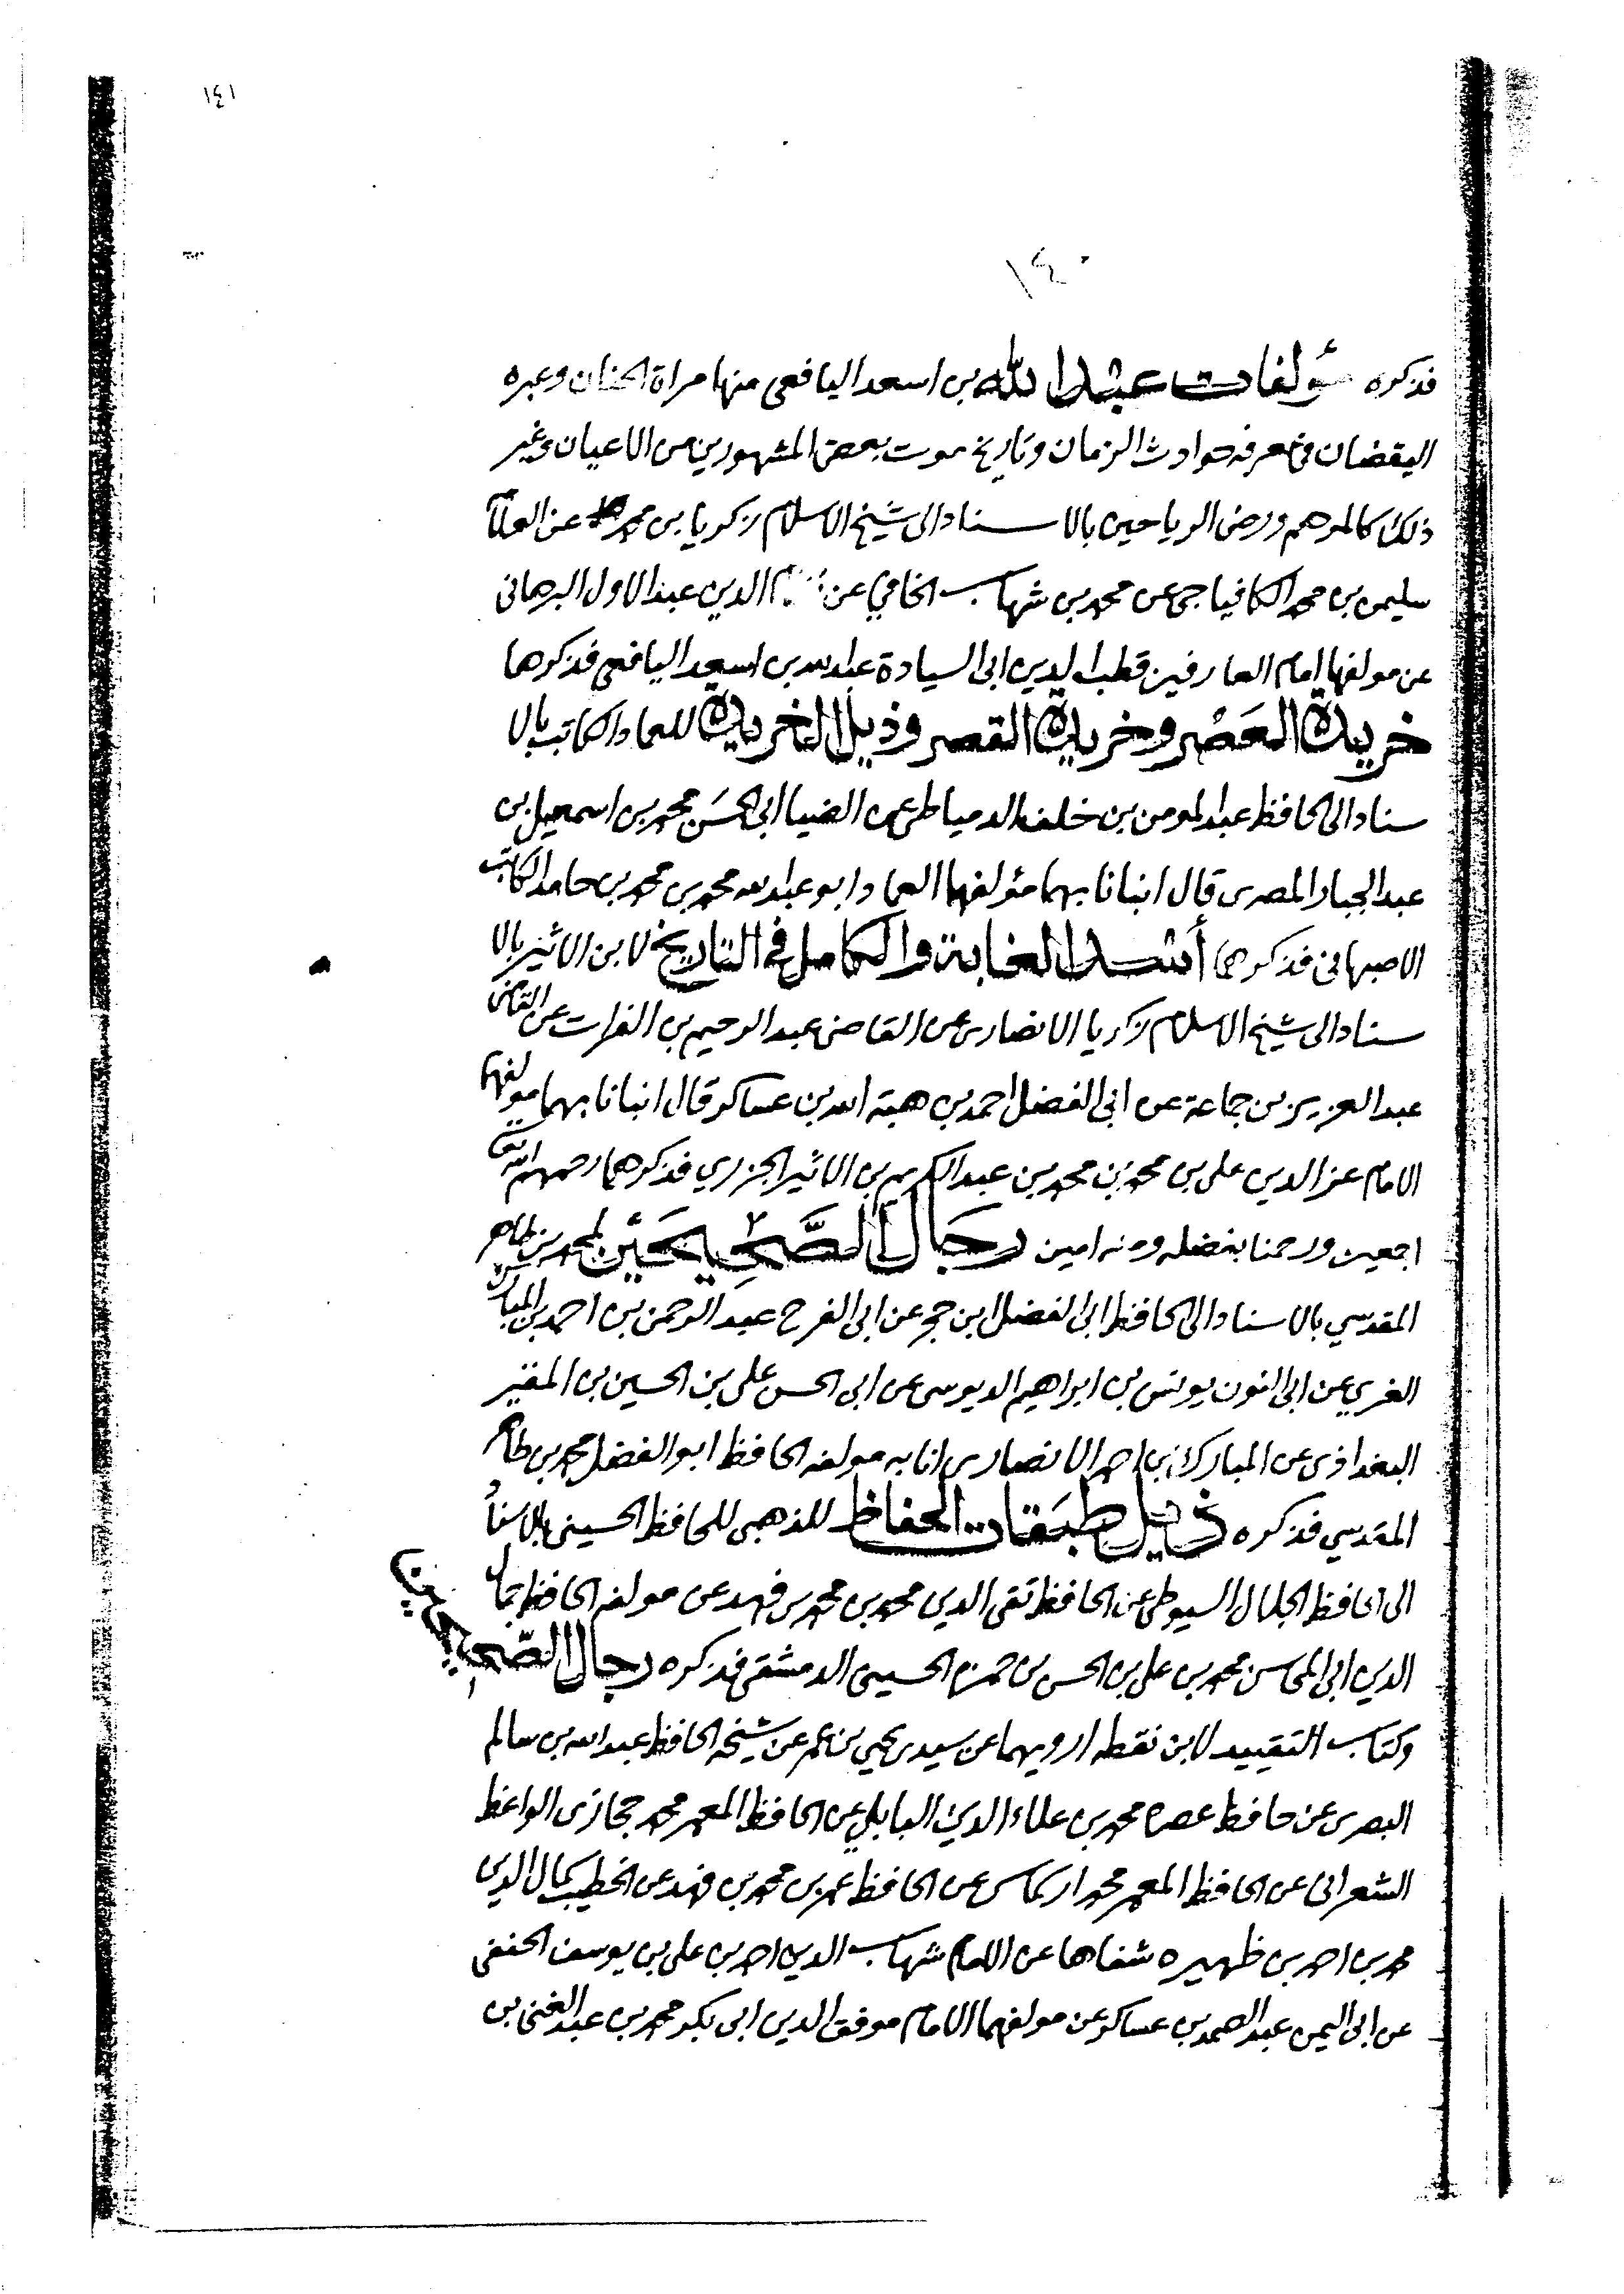 ١٤١
١٤٠
فذكره مؤلفات عبد الله بن اسعد اليافعي منها مراة الجنان وعبره
اليقضان في معرفة حوادث الزمان وتاريخ موت بعض المشهورين من الاعيان وغير
ذلك كالمرهم وروض الرياحين بالاسناد الى شيخ الاسلام زكريا بن محمد عن العلا
سليمن بن محمد الكافياجى عن محمد بن شهاب الخافي عن الدين عبد الاول البرهانى
عن مولفها امام العارفين قطب الدين ابى السيادة عبد الله بن اسعد اليافعى فذكرها
خريدة العَصْر وخريدة القصر وذيل الخريدة للعماد الكاتب بالا
سناد الى الحافظ عبد المومن بن خلف الدمياطى عن الضيا ابى الحسَن محمد بن اسمعيل بن
عبد الجبار المصرى قال انبانا بهما مؤلفهما العماد ابو عبد الله محمد بن محمد بن حامد الكاتب
الاصبهانى فذكرهما أسد الغابة والكامل فى التاريخ لابن الاثير بالا
سناد الى شيخ الاسلام زكريا الانصارى عن القاضى عبد الرحيم بن الفرات عن القاضى
عبد العزيز بن جماعة عن ابى الفضل احمد بن هبة الله بن عساكر قال انبانا بهما مولفهما
الامام عز الدين على بن محمد بن محمد بن عبد الكريم بن الاثير الجزري فذكرهما رحمهم الله تعا
اجمعين ورحمنا بفضله ومنه امين رجَال الصَّحِيحَيْن لمحمد بن طاهر
المقدسي بالاسناد الى الحافظ ابى الفضل ابن حجر عن ابى الفرح عبد الرحمن بن احمد بن المبارك
الغزي عن ابى النون يونس بن ابراهيم الدبوسى عن ابى الحسن على بن الحسين بن المقير
البغداذى عن المبارك بن احمد الانصارى انا به مولفه الحافظ ابو الفضل محمد بن طاهر
المقدسي فذكره ذيل طبَقات الحفاظ للذهبى للحافظ الحسينى بالاسنا
الى الحافظ الجلال السيوطى عن الحافظ تقى الدين محمد بن محمد بن فهد عن مولفه الحافظ جمال
الدين ابى المحاسن محمد بن على بن الحسن بن حمزه الحسينى الدمشقى فذكره رجال الصّحيحين
وكتاب التقييد لابن نقطه ارويهما عن سيدى يحيى بن عمر عن شيخه الحافظ عبد الله بن سالم
البصرى عن حافظ عصره محمد بن علاء الدين البابلي عن الحافظ المعمر محمد حجازى الواعظ
الشعرانى عن الحافظ المعمر محمد اركماس عن الحافظ عمر بن محمد بن فهد عن الخطيب كمال الدين
محمد بن احمد بن ظهيره شفاها عن الامام شهاب الدين احمد بن على بن يوسف الحنفى
عن ابى اليمن عبد الصمد بن عساكر عن مولفهما الامام موفق الدين ابى بكر محمد بن عبد الغنى بن